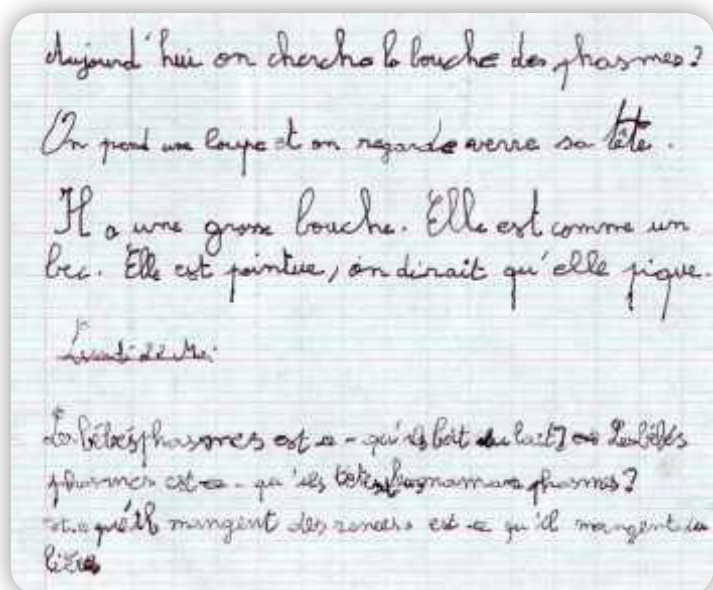 Aujourd'hui on cherche la bouche des phasmes?
On prend une loupe et on regarde verre sa tête.
Il a une grosse bouche. Elle est comme un
bec. Elle est pointue, on dirait qu'elle pique.
22 Mai
Les bébés phasmes est-ce-qu'ils boit du lait? Les bébés
phasmes est-ce-qu'ils maman phasmes?
est-ce qu'il mangent des ronces est-ce qu'il mangent du